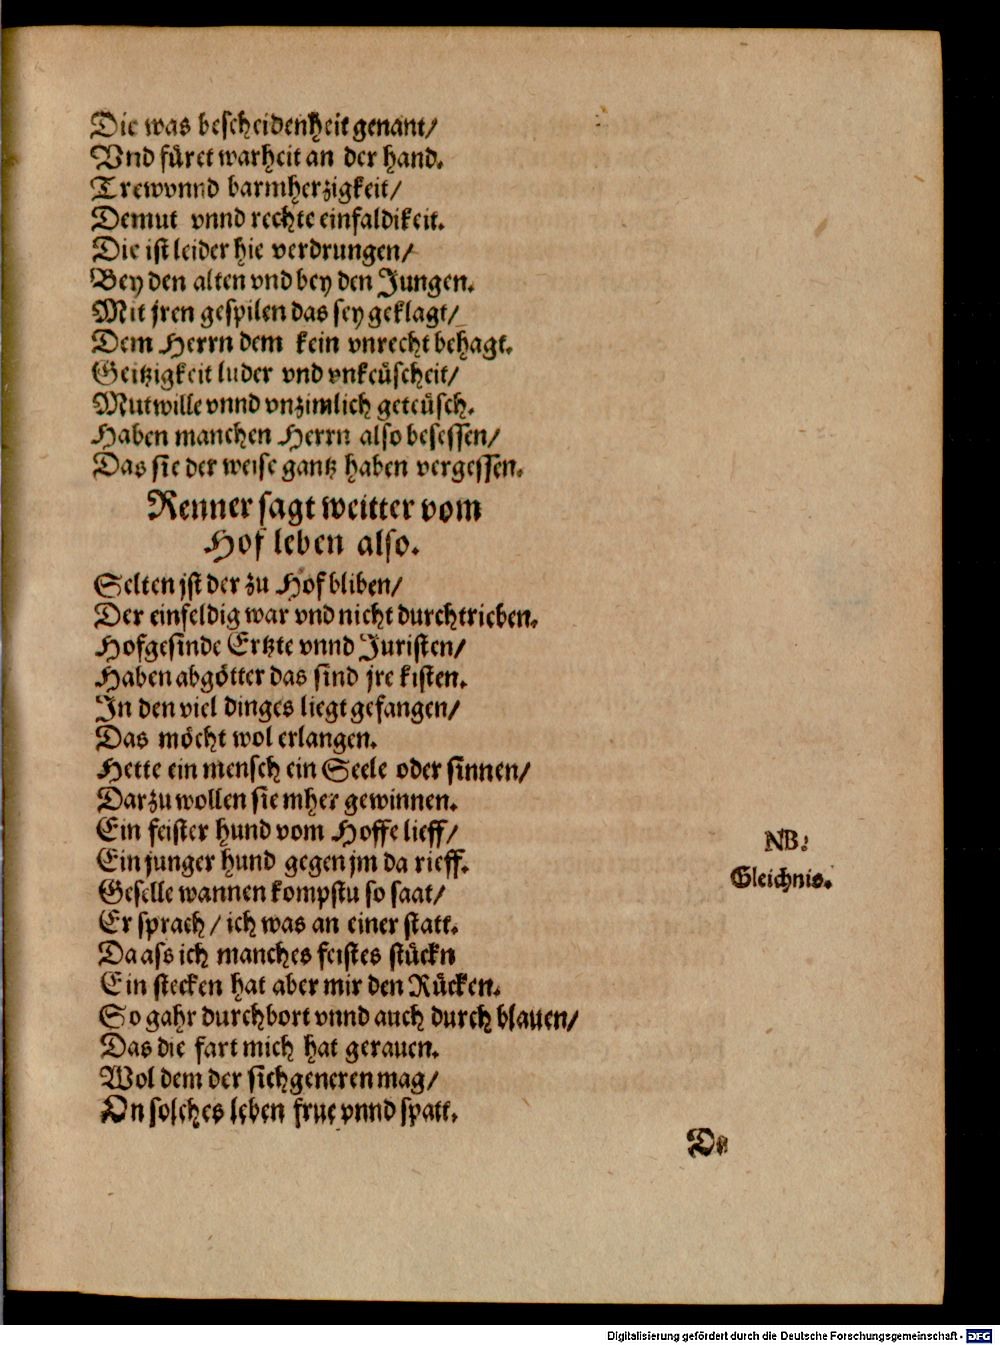 Die was bescheidenheit genant/
Vnd füret warheit an der hand.
Trew vnnd barmherzigkeit/
Demut vnnd rechte einfaldikeit.
Die ist leider hie verdrungen/
Bey den alten vnd bey den Jungen.
Mit jren gespilen das sey geklagt/
Dem Herrn dem kein vnrecht behagt.
Geitzigkeit luder vnd vnkeüscheit/
Mutwille vnnd vnzimlich geteüsch.
Haben manchen Herrn also besessen/
Das sie der weise gantz haben vergessen.
Renner sagt weitter vom
Hof leben also.
Selten jst der zu Hof bliben/
Der einfeldig war vnd nicht durchtrieben.
Hofgesinde Ertzte vnnd Juristen/
Haben abgötter das sind jre kisten.
In den viel dinges liegt gefangen/
Das möcht wol erlangen.
Hette ein mensch ein Seele oder sinnen/
Darzu wollen sie mher gewinnen.
Ein feister hund vom Hoffe lieff/
Ein junger hund gegen jm da rieff.
NB:
Gleichnis.
Geselle wannen kompstu so saat/
Er sprach/ ich was an einer statt.
Da ass ich manches feistes stückn
Ein stecken hat aber mir den Rücken.
So gahr durchbort vnnd auch durch blauen/
Das die fart mich hat gerauen.
Wol dem der sich generen mag/
On solches leben frue vnnd spatt.
De
Digitalisierung gefördert durch die Deutsche Forschungsgemeinschaft - DFG